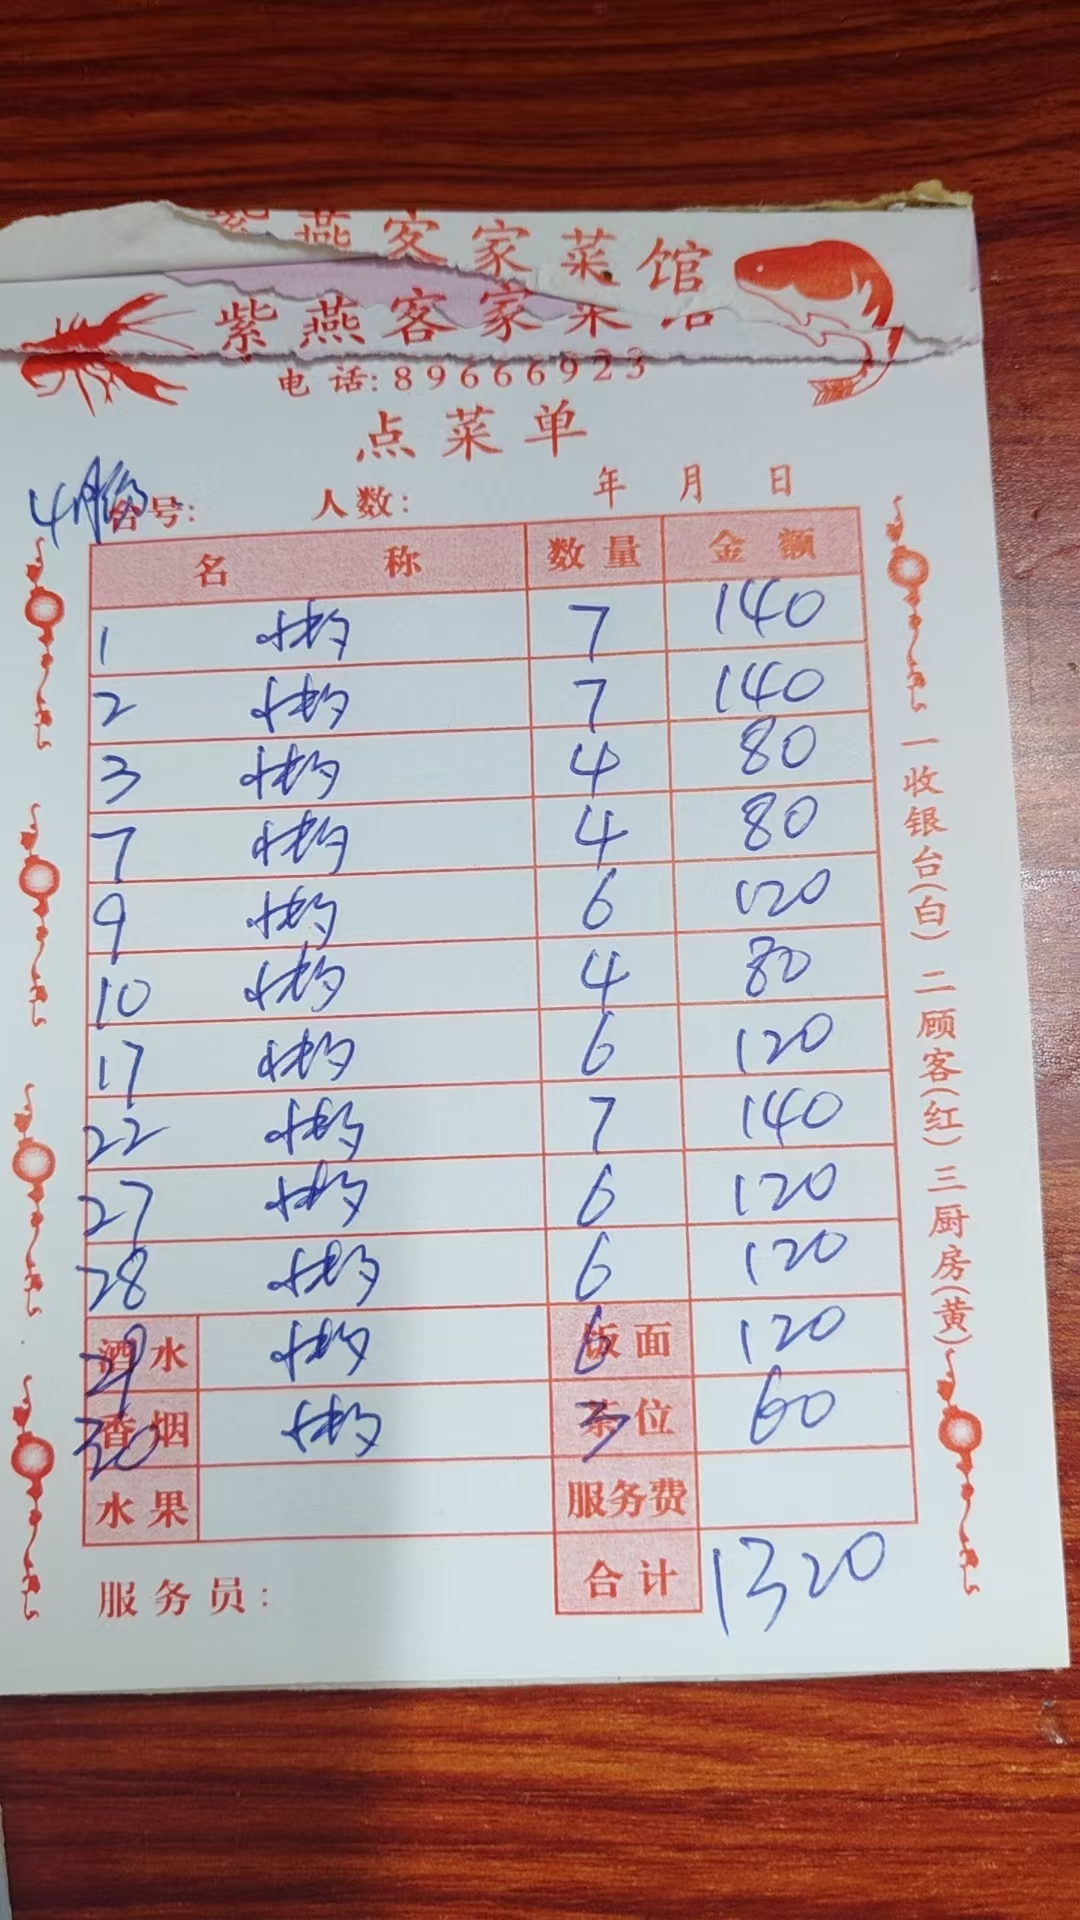 紫燕客家菜馆
紫燕客家菜馆
电话:89666923
点菜单
4月份
台号: 人数: 年 月 日
名称 数量 金额
1 快餐 7 140
2 快餐 7 140
3 快餐 4 80
7 快餐 4 80
9 快餐 6 120
10 快餐 4 80
17 快餐 6 120
22 快餐 7 140
27 快餐 6 120
28 快餐 6 120
酒水 29 快餐 饭面 6 120
香烟 30 快餐 茶位 3 60
水果 服务费
服务员: 合计 1320
一收银台(白) 二顾客(红) 三厨房(黄)